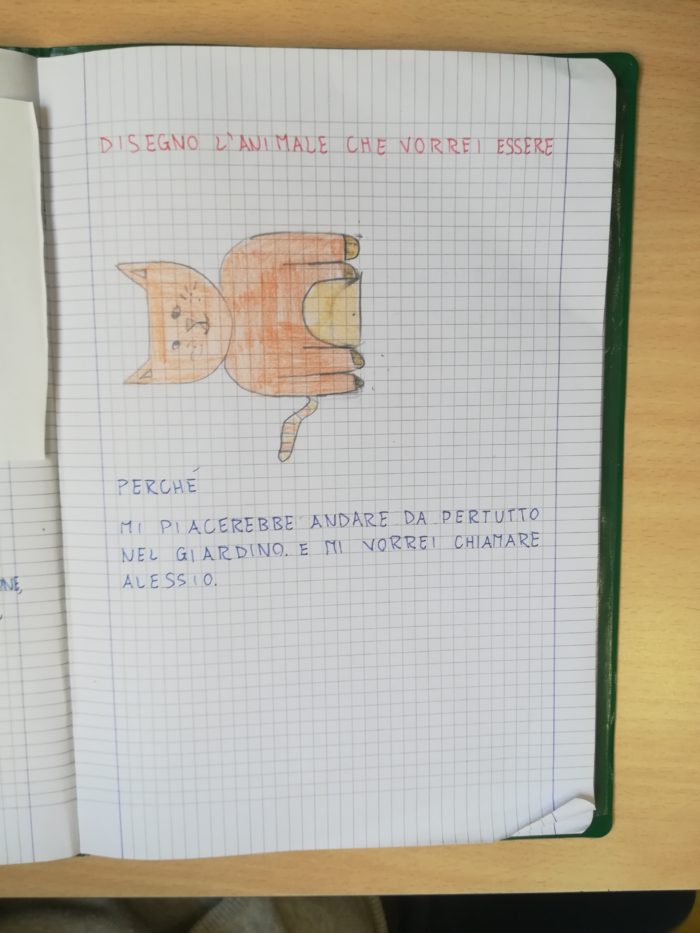 DISEGNO L'ANIMALE CHE VORREI ESSERE
PERCHÉ
MI PIACEREBBE ANDARE DA PERTUTTO
NEL GIARDINO. E MI VORREI CHIAMARE
ALESSIO.